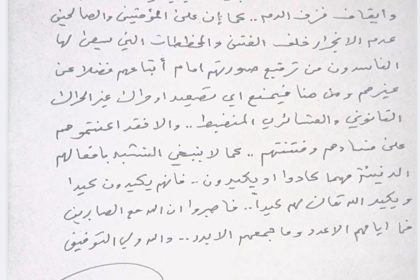 وايقاف نزف الدم .. كما إن على المؤمنين والصالحين
عدم الانجرار خلف الفتن والمخططات التي يسعى لها
الفاسدون من ترقيع صورتهم امام أتباعهم فضلا عن
غيرهم ومن هنا فيمنع اي تصعيد او حراك غير الحراك
القانوني والعشائري المنضبط .. والا فقد اعنتموهم
على فسادهم وفتنتهم .. كما لا ينبغي التشبه بافعالهم
الدنيئة مهما كادوا او يكيدون .. فانهم يكيدون كيدا
ويكيد الله تعالى لهم كيداً .. فاصبروا ان الله مع الصابرين
فما ايامهم الا عدد وما جمعهم الا بدد ... والله ولي التوفيق